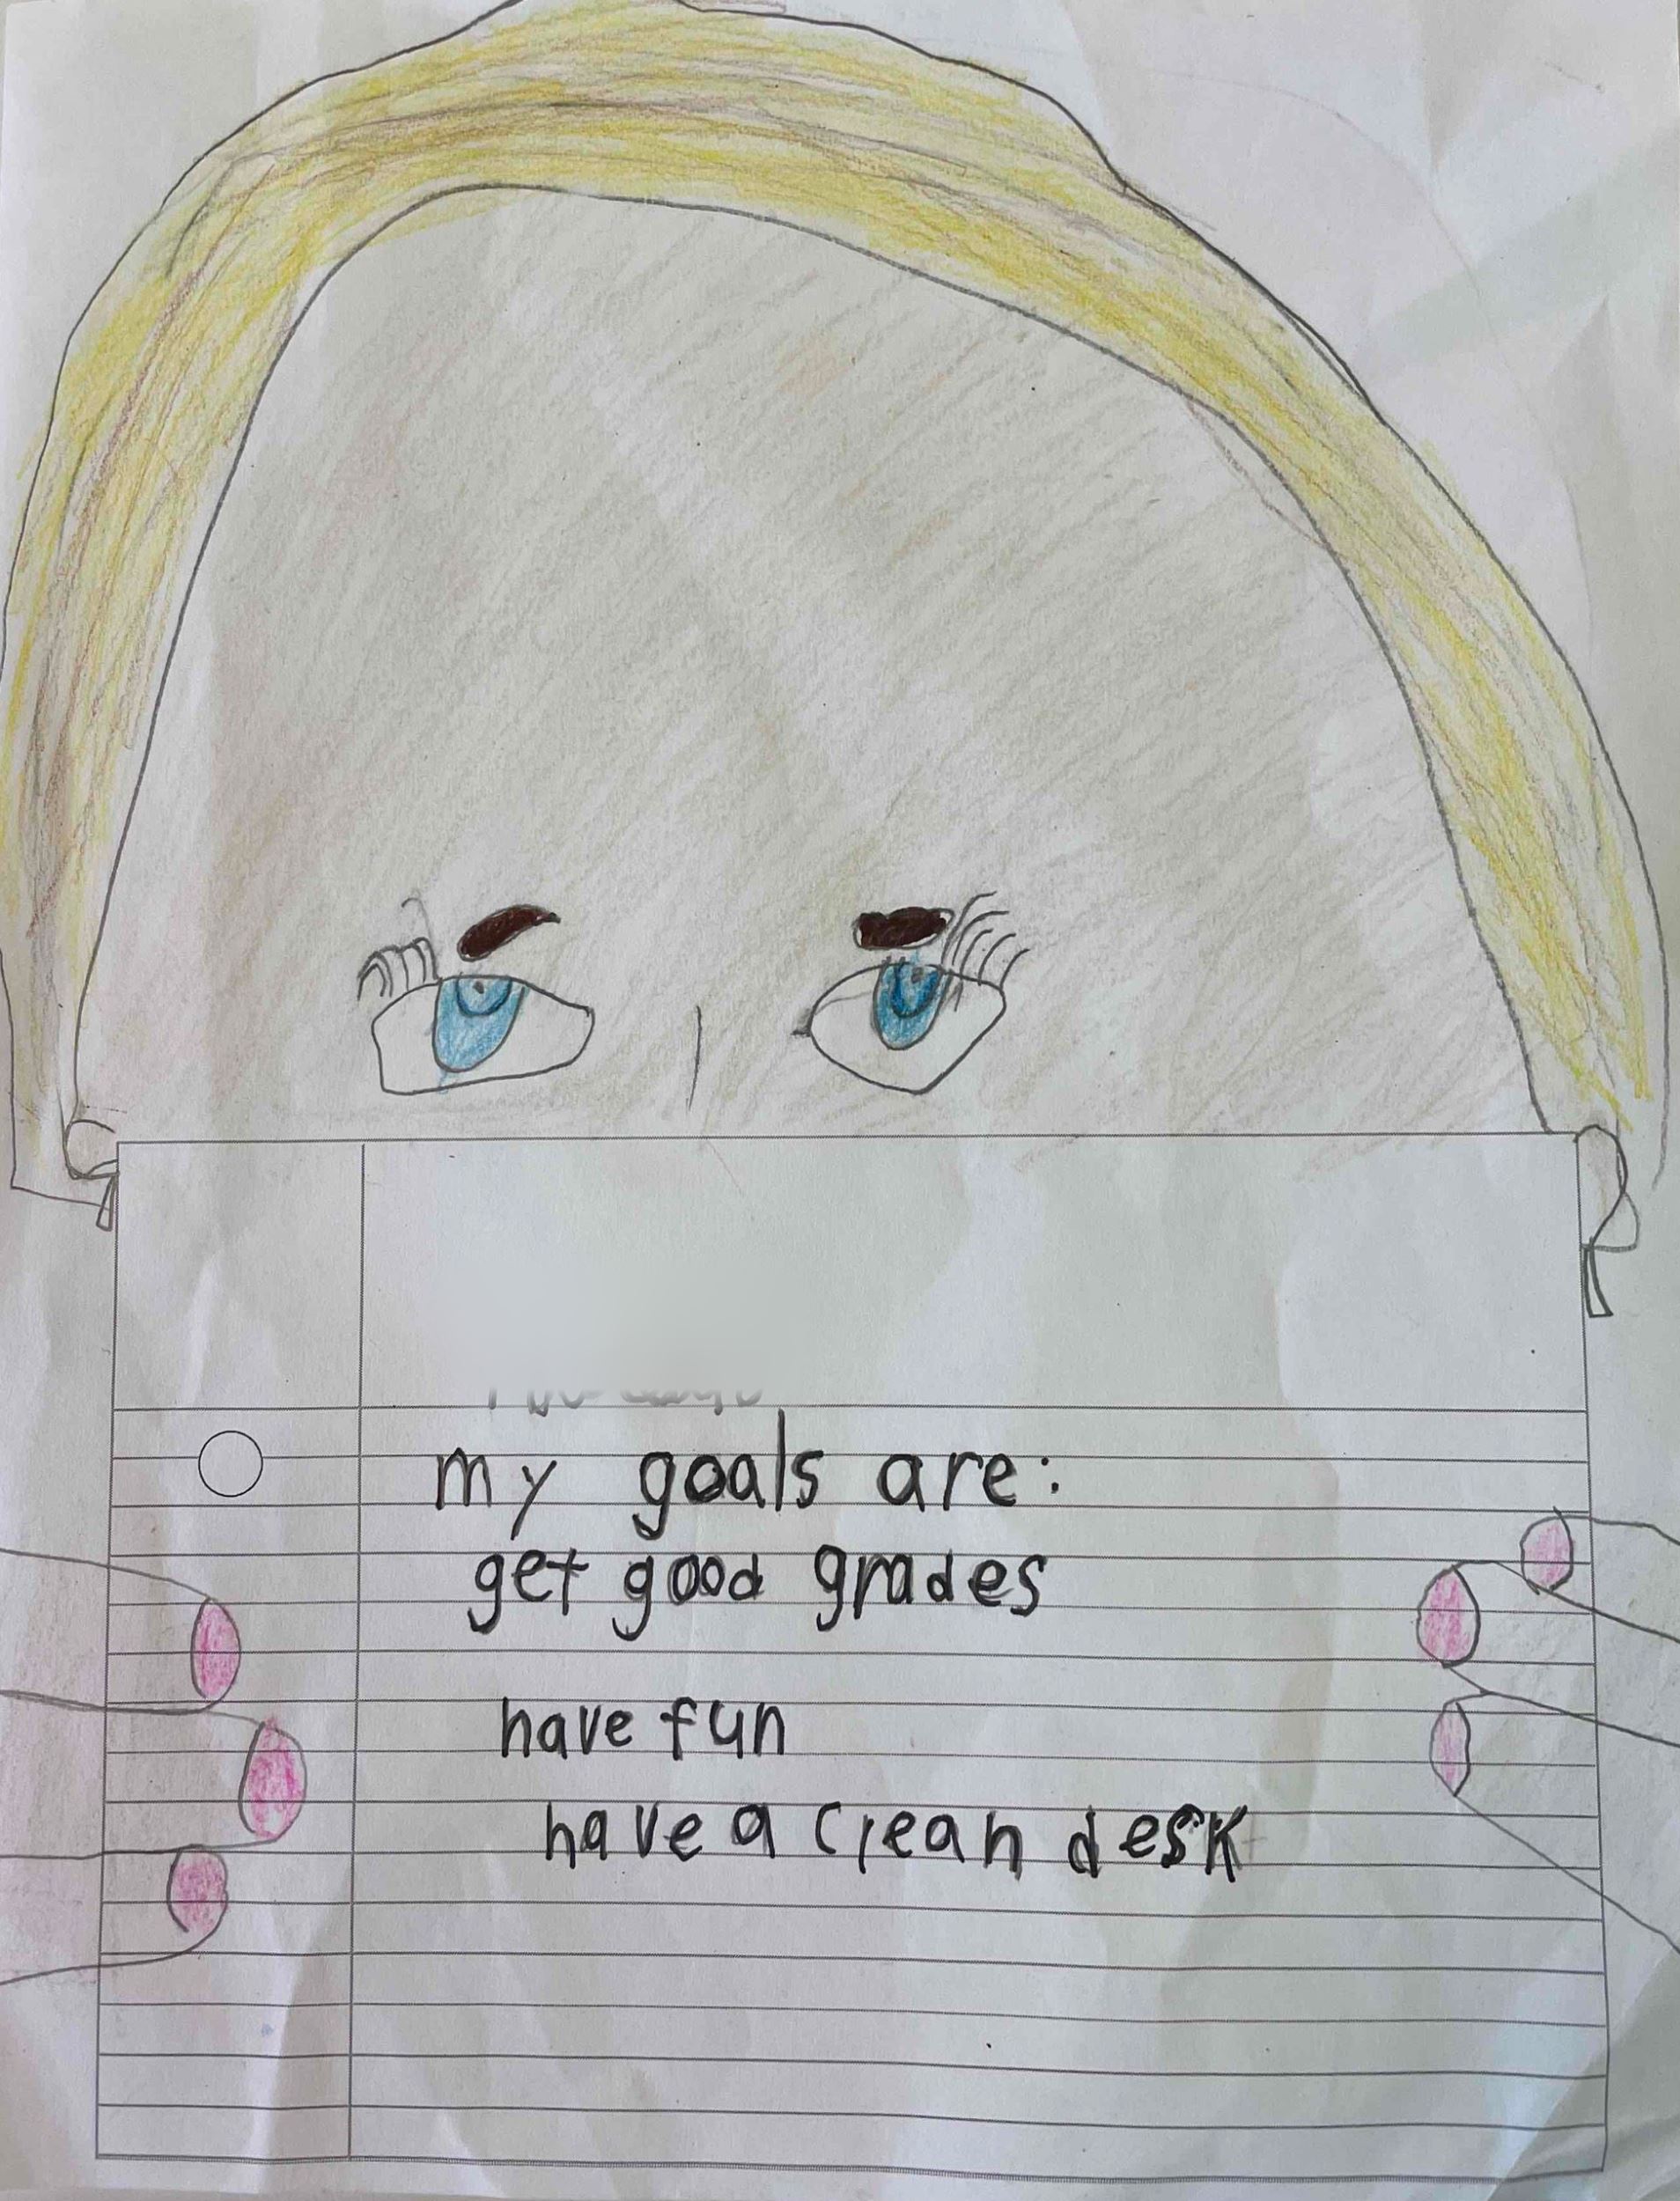 my goals are:
get good grades
have fun
have a clean desk